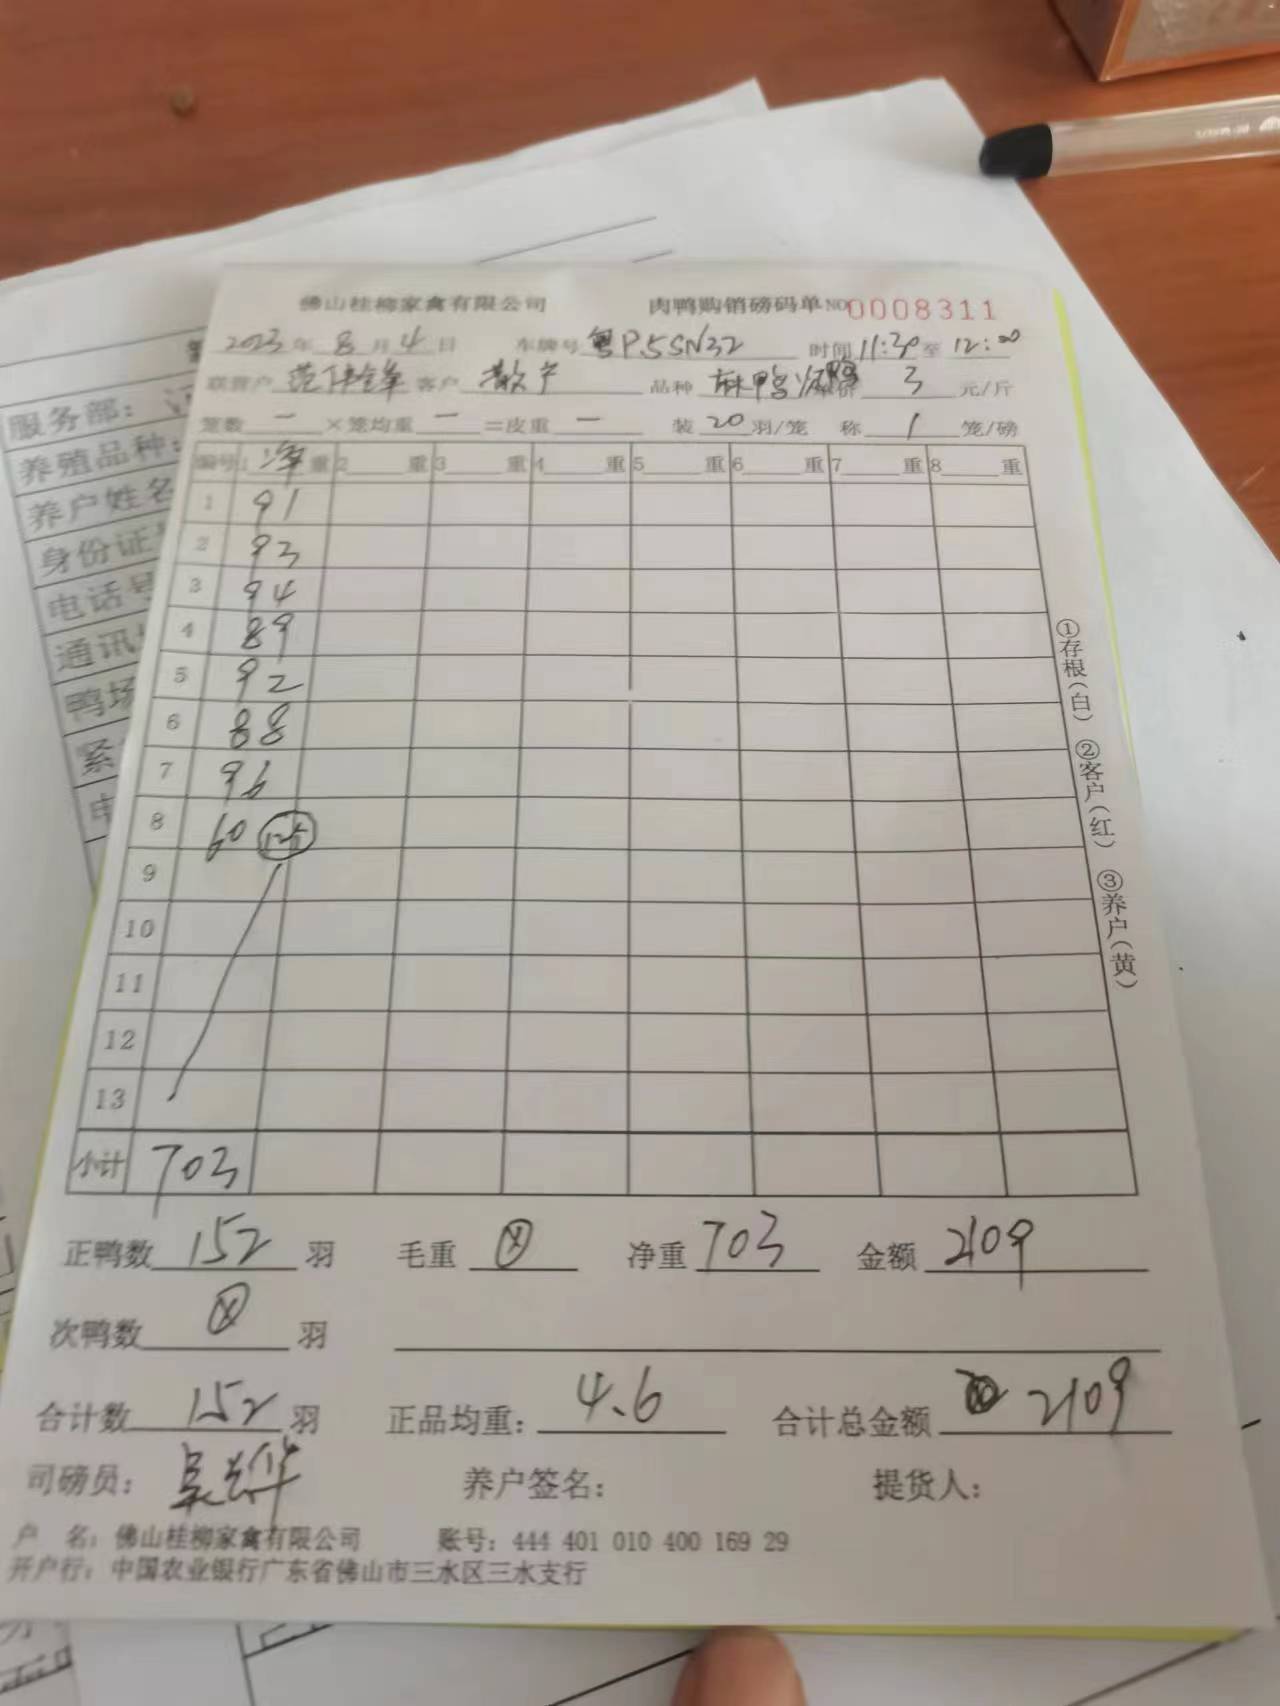 佛山桂柳家禽有限公司 肉鸭购销磅码单 NO 0008311
2023年 8月 4日 车牌号 粤P.5SN32 时间 11:30 至 12:00
联养户 范伟锋 客户 散户 品种 麻鸭 单价 3 元/斤
笼数 一 ×笼均重 一 =皮重 一 装 20 羽/笼 称 1 笼/磅
编号 1 净重 2 重 3 重 4 重 5 重 6 重 7 重 8 重
1 91
2 93
3 94
4 89
5 92
6 88
7 96
8 60
9
10
11
12
13
小计 703
正鸭数 152 羽 毛重 净重 703 金额 2109
次鸭数 羽
合计数 152 羽 正品均重: 4.6 合计总金额 2109
司磅员: 养户签名: 提货人:
户 名: 佛山桂柳家禽有限公司 账号: 444 401 010 400 169 29
开户行: 中国农业银行广东省佛山市三水区三水支行
①存根(白) ②客户(红) ③养户(黄)
服务部:
养殖品种:
养户姓名
身份证
电话号
通讯
鸭场
紧